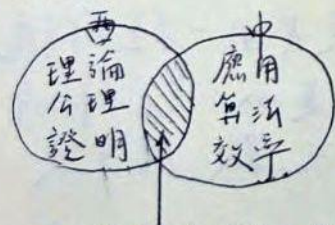 西
理論
公理
證明
中
應用
算法
效率